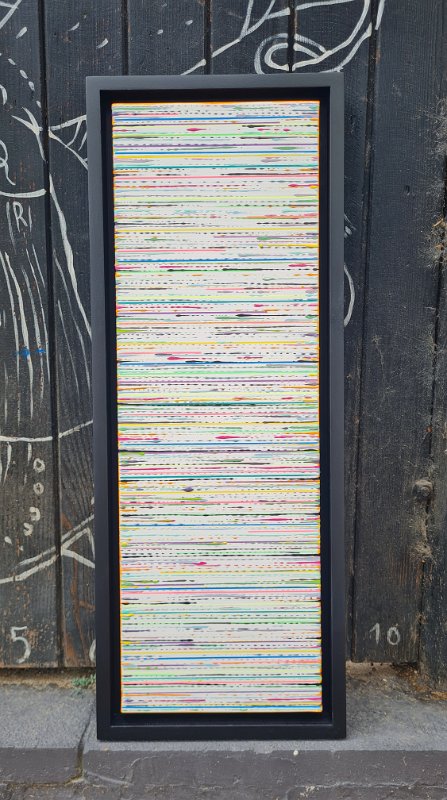 R
5
10